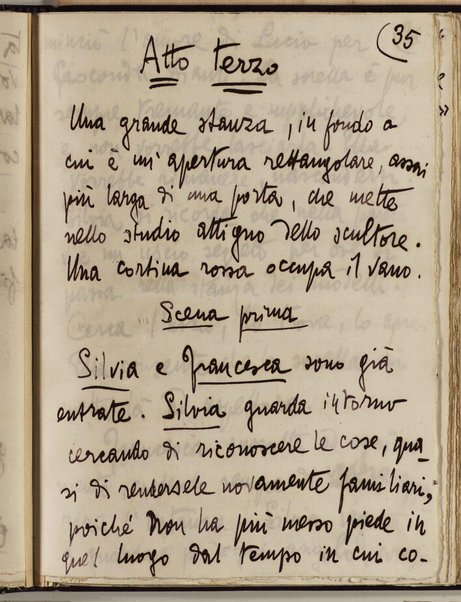 (35
Atto terzo
Una grande stanza, in fondo a
cui è un'apertura rettangolare, assai
più larga di una porta, che mette
nello studio attiguo dello scultore.
Una cortina rossa occupa il vano.
Scena prima
Silvia e Francesca sono già
entrate. Silvia guarda intorno
cercando di riconoscere le cose, qua-
si di rendersele novamente familiari,
poiché non ha più messo piede in
quel luogo dal tempo in cui co-